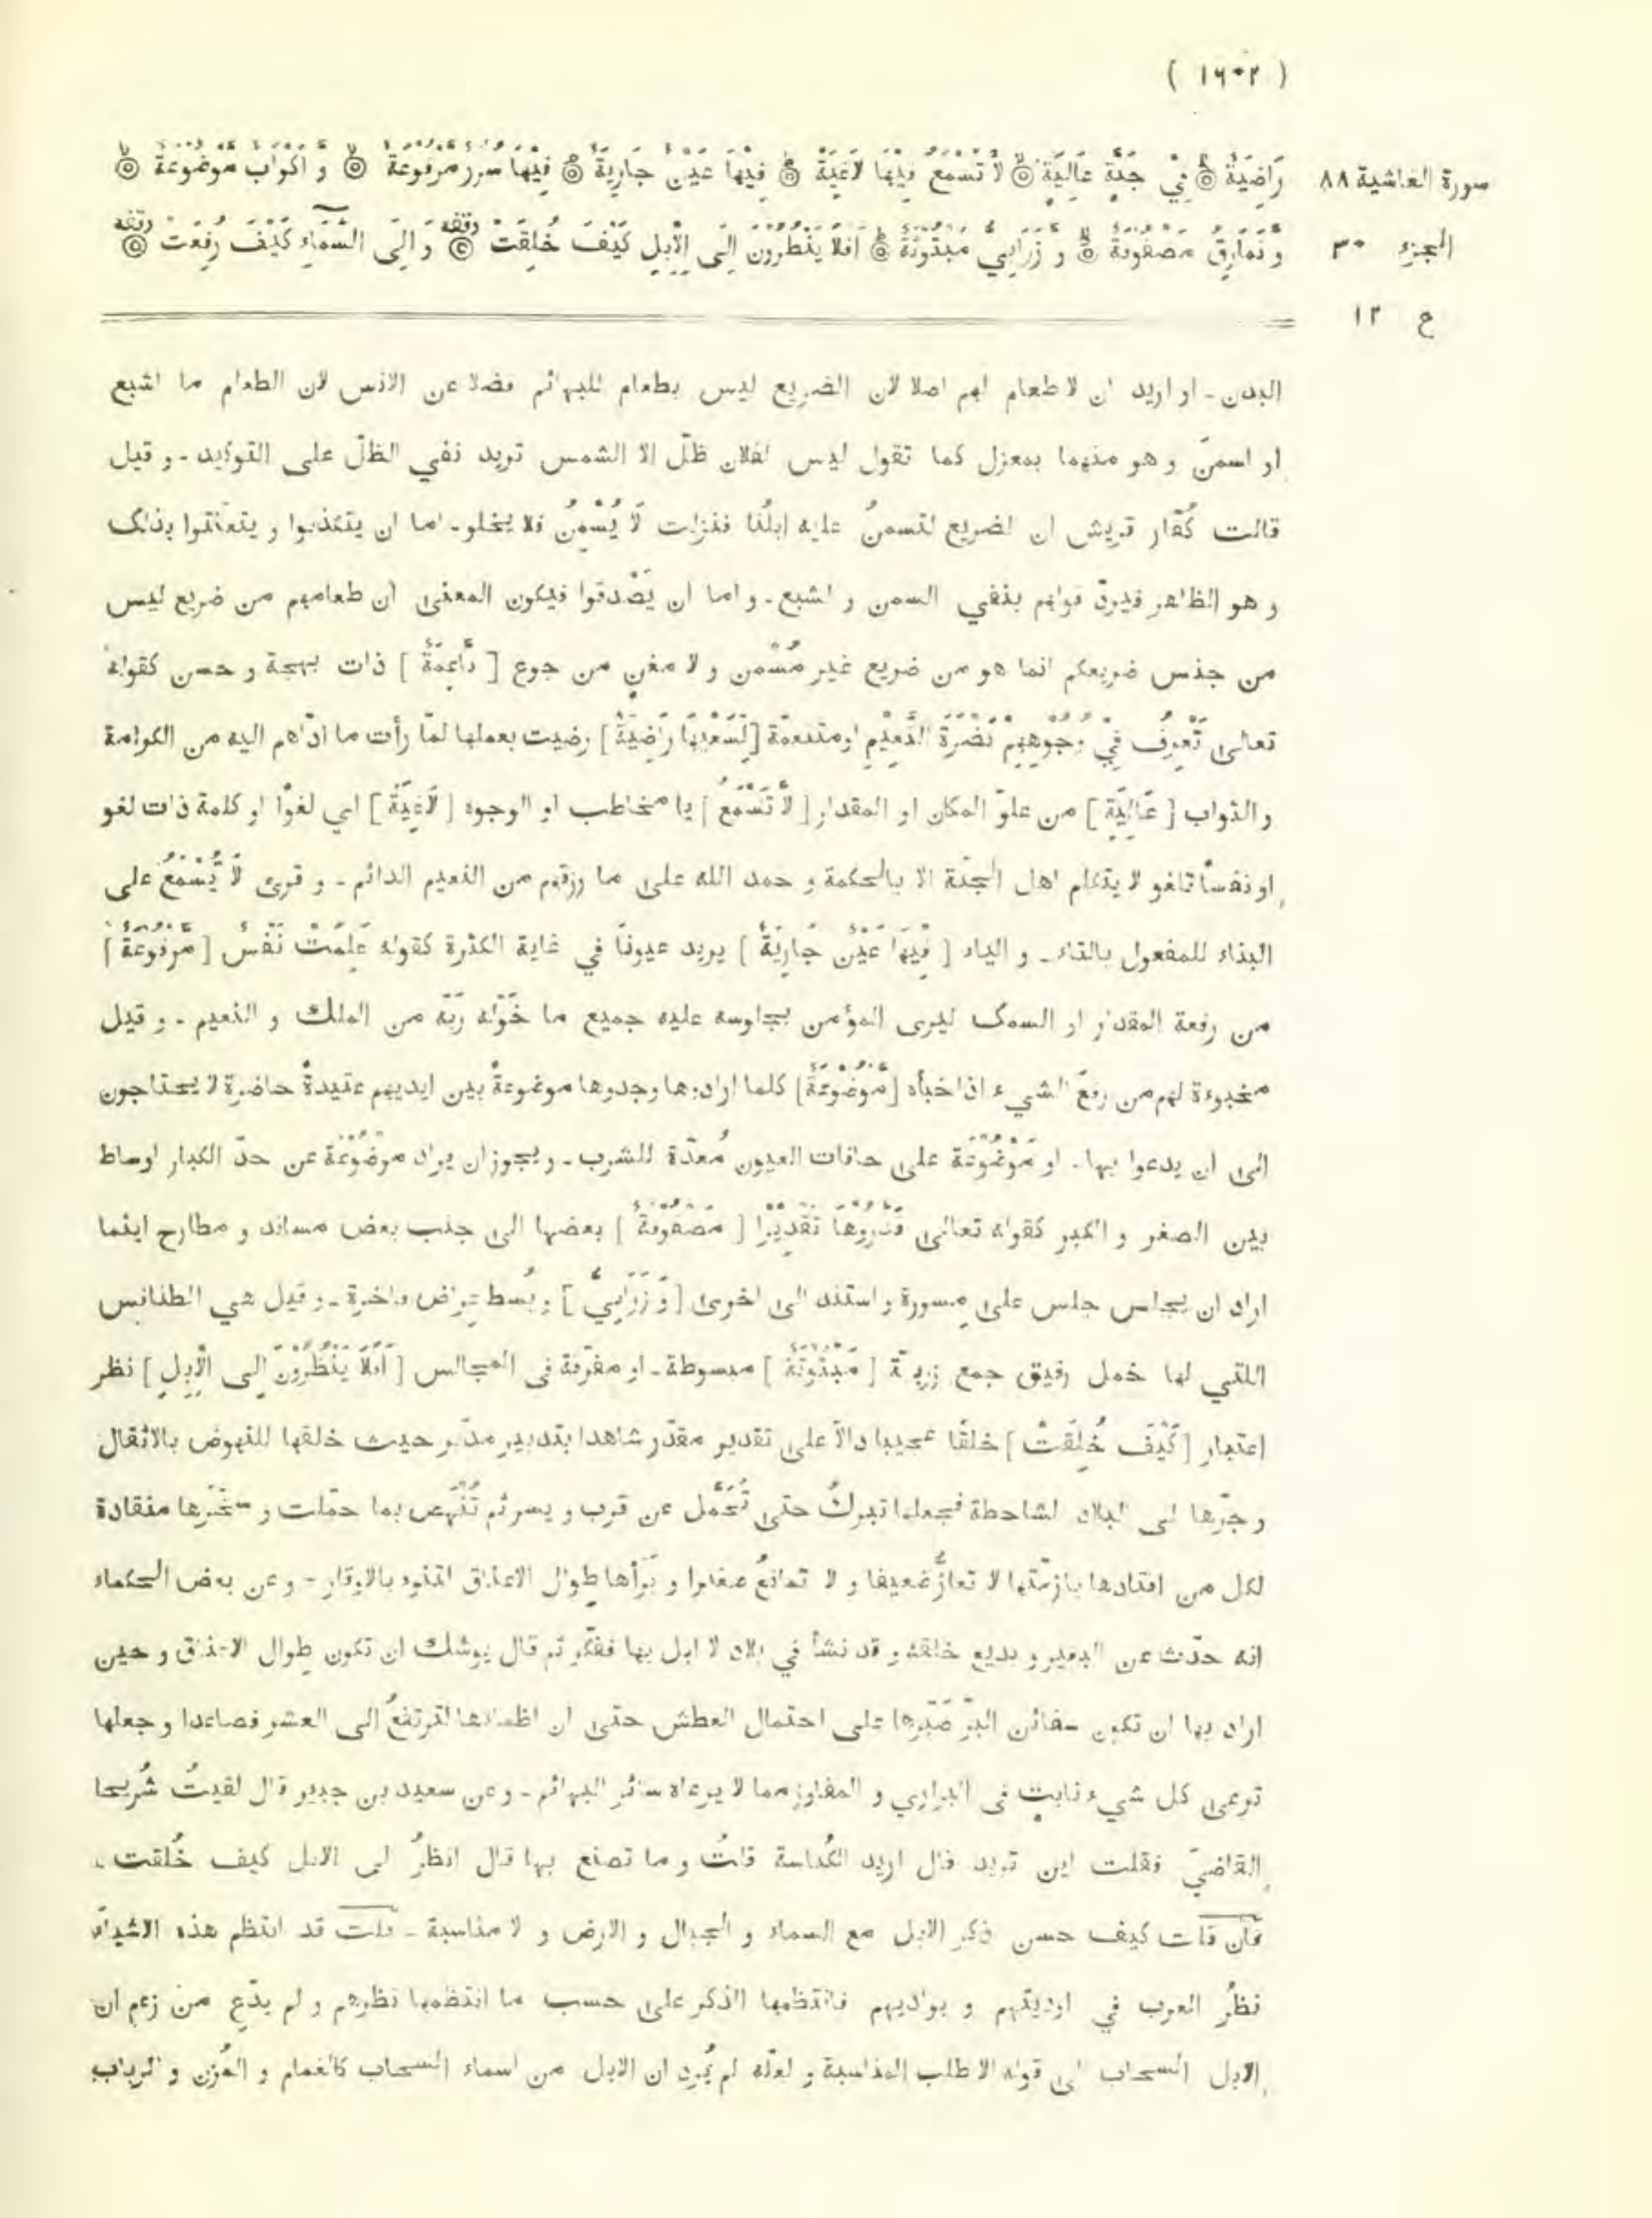 ( ١٦٠٢ )
سورة الغاشية ٨٨
الجزء ٣٠
ع ١٣
رَاضِيَةٌ ۞ فِيْ جَنَّةٍ عَالِيَةٍ ۞ لَا تَسْمَعُ فِيْهَا لَاغِيَةً ۞ فِيْهَا عَيْنٌ جَارِيَةٌ ۞ فِيْهَا سُرُرٌ مَرْفُوعَةٌ ۞ وَ اَكْوَابٌ مَوْضُوعَةٌ ۞
وَ نَمَارِقُ مَصْفُوفَةٌ ۞ وَ زَرَابِيُّ مَبْثُوثَةٌ ۞ اَفَلَا يَنْظُرُونَ اِلَى الْاِبِلِ كَيْفَ خُلِقَتْ وقفه ۞ وَ اِلَى السَّمَاءِ كَيْفَ رُفِعَتْ وقفه ۞
البدن ـ او اريد ان لا طعام لهم اصلا لان الضريع ليس بطعام للبهائم فضلا عن الانس لان الطعام ما اشبع
او اسمنَ و هو منهما بمعزل كما تقول ليس لفلان ظلّ الا الشمس تريد نفي الظلّ على التوكيد ـ و قيل
قالت كُفّار قريش ان الضريع لتسمنُ عليه ابلُنا فنزلت لَا يُسْمِنُ فلا يخلو ـ اما ان يتكذبوا و يتعنّتوا بذلك
و هو الظاهر فيردّ قولهم بنفي السمن و الشبع ـ و اما ان يَصْدقوا فيكون المعنى ان طعامهم من ضريع ليس
من جنس ضريعكم انما هو من ضريع غير مُسْمن و لا مغنٍ من جوع [ نَاعِمَةٌ ] ذات بهجة و حسن كقوله
تعالى تَعْرِفُ فِيْ وُجُوْهِهِمْ نَضْرَةَ النَّعِيْمِ او متنعمة [ لِسَعْيِهَا رَاضِيَةٌ ] رضيت بعملها لمّا رأت ما ادّاهم اليه من الكرامة
والثواب [ عَالِيَةٍ ] من علوّ المكان او المقدار [ لَا تَسْمَعُ ] يا مخاطب او الوجوه [ لَاغِيَةً ] اي لغوًا او كلمة ذات لغو
او نفسًا تلغو لا يتكلم اهل الجنّة الا بالحكمة و حمد الله على ما رزقهم من النعيم الدائم ـ و قرئ لَا تُسْمَعُ على
البناء للمفعول بالتاء ـ و الياء [ فِيْهَا عَيْنٌ جَارِيَةٌ ] يريد عيونًا في غاية الكثرة كقوله عَلِمَتْ نَفْسٌ [ مَرْفُوعَةٌ ]
من رفعة المقدار او السمك ليرى المؤمن بجلوسه عليه جميع ما خَوّله رَبّه من الملك و النعيم ـ و قيل
مخبوءة لهم من رفعَ الشيء اذا خبأه [ مَوْضُوعَةٌ ] كلما ارادوها وجدوها موضوعةً بين ايديهم عتيدةً حاضرة لا يحتاجون
الى ان يدعوا بها ـ او مَوْضُوْعَة على حافات العيون مُعدّة للشرب ـ و يجوز ان يراد مَوْضُوْعَة عن حدّ الكبار اوساط
بين الصغر و الكبر كقوله تعالى قَدَّرُوْهَا تَقْدِيْرًا [ مَصْفُوفَةٌ ] بعضها الى جنب بعض مساند و مطارح اينما
اراد ان يجلس جلس على مِسورة و استند الى اخرى [ وَ زَرَابِيُّ ] و بُسط عِراض فاخرة ـ و قيل هي الطنافس
اللتي لها خمل رقيق جمع زربيّة [ مَبْثُوثَةٌ ] مبسوطة ـ او مفرّقة فى المجالس [ اَفَلَا يَنْظُرُوْنَ اِلى الْاِبِلِ ] نظر
اعتبار [ كَيْفَ خُلِقَتْ ] خلقًا عجيبا دالّا على تقدير مقدّر شاهدا بتدبير مدبّر حيث خلقها للنهوض بالاثقال
و جرّها الى البلاد الشاحطة فجعلها تبركُ حتى تُحَمَّل عن قرب و يسر ثم تَنْهَض بما حمّلت و سخّرها منقادة
لكل من اقتادها بازمّتها لا تعازُّ ضعيفا و لا تمانعُ صغيرا و بَرَأها طِوال الاعناق لتنوء بالاوقار ـ و عن بعض الحكماء
انه حدّث عن البعير و بديع خلقه و قد نشأ في بلاد لا ابل بها ففكّر ثم قال يوشك ان تكون طِوال الاعناق و حين
اراد بها ان تكون سفائن البرّ صَبّرها على احتمال العطش حتى ان اظماءها لترتفعُ الى العشر فصاعدا و جعلها
ترعى كل شيء نابتٍ فى البراري و المفاوز مما لا يرعاه سائر البهائم ـ و عن سعيد بن جبير قال لقيتُ شُريحا
القاضيَ فقلت اين تريد قال اريد الكُناسة قلتُ و ما تصنع بها قال انظُرُ الى الابل كيف خُلقت ـ
فَان قلت كيف حسن ذكر الابل مع السماء و الجبال و الارض و لا مناسبة ـ قلت قد انتظم هذه الاشياءَ
نظرُ العرب في اوديتهم و بواديهم فانتظمها الذكر على حسب ما انتظمها نظرهم و لم يدّعِ من زعم ان
الابل السحاب الى قوله الا طلب المناسبة و لعلّه لم يُرد ان الابل من اسماء السحاب كالغمام و المُزن و الرباب